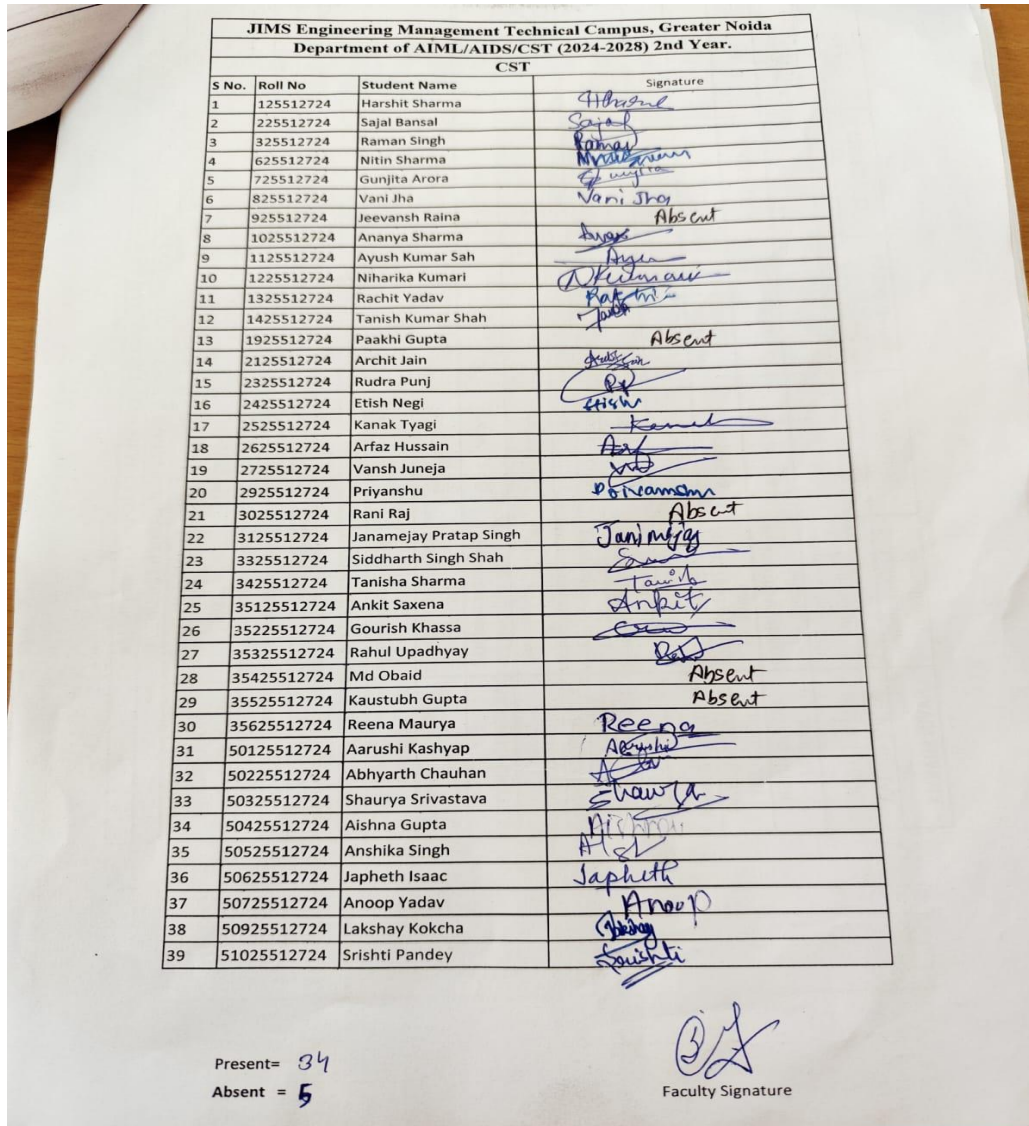 JIMS Engineering Management Technical Campus, Greater Noida
Department of AIML/AIDS/CST (2024-2028) 2nd Year.
CST
S No. Roll No Student Name Signature
1 125512724 Harshit Sharma
2 225512724 Sajal Bansal Sajal
3 325512724 Raman Singh Raman
4 625512724 Nitin Sharma
5 725512724 Gunjita Arora
6 825512724 Vani Jha Vani Jha
7 925512724 Jeevansh Raina Absent
8 1025512724 Ananya Sharma
9 1125512724 Ayush Kumar Sah
10 1225512724 Niharika Kumari NKumari
11 1325512724 Rachit Yadav
12 1425512724 Tanish Kumar Shah
13 1925512724 Paakhi Gupta Absent
14 2125512724 Archit Jain
15 2325512724 Rudra Punj
16 2425512724 Etish Negi Etish
17 2525512724 Kanak Tyagi
18 2625512724 Arfaz Hussain
19 2725512724 Vansh Juneja
20 2925512724 Priyanshu
21 3025512724 Rani Raj Absent
22 3125512724 Janamejay Pratap Singh
23 3325512724 Siddharth Singh Shah
24 3425512724 Tanisha Sharma
25 35125512724 Ankit Saxena Ankit
26 35225512724 Gourish Khassa
27 35325512724 Rahul Upadhyay
28 35425512724 Md Obaid Absent
29 35525512724 Kaustubh Gupta Absent
30 35625512724 Reena Maurya Reena
31 50125512724 Aarushi Kashyap
32 50225512724 Abhyarth Chauhan
33 50325512724 Shaurya Srivastava
34 50425512724 Aishna Gupta
35 50525512724 Anshika Singh
36 50625512724 Japheth Isaac Japheth
37 50725512724 Anoop Yadav Anoop
38 50925512724 Lakshay Kokcha
39 51025512724 Srishti Pandey
Present= 34
Absent = 5
Faculty Signature